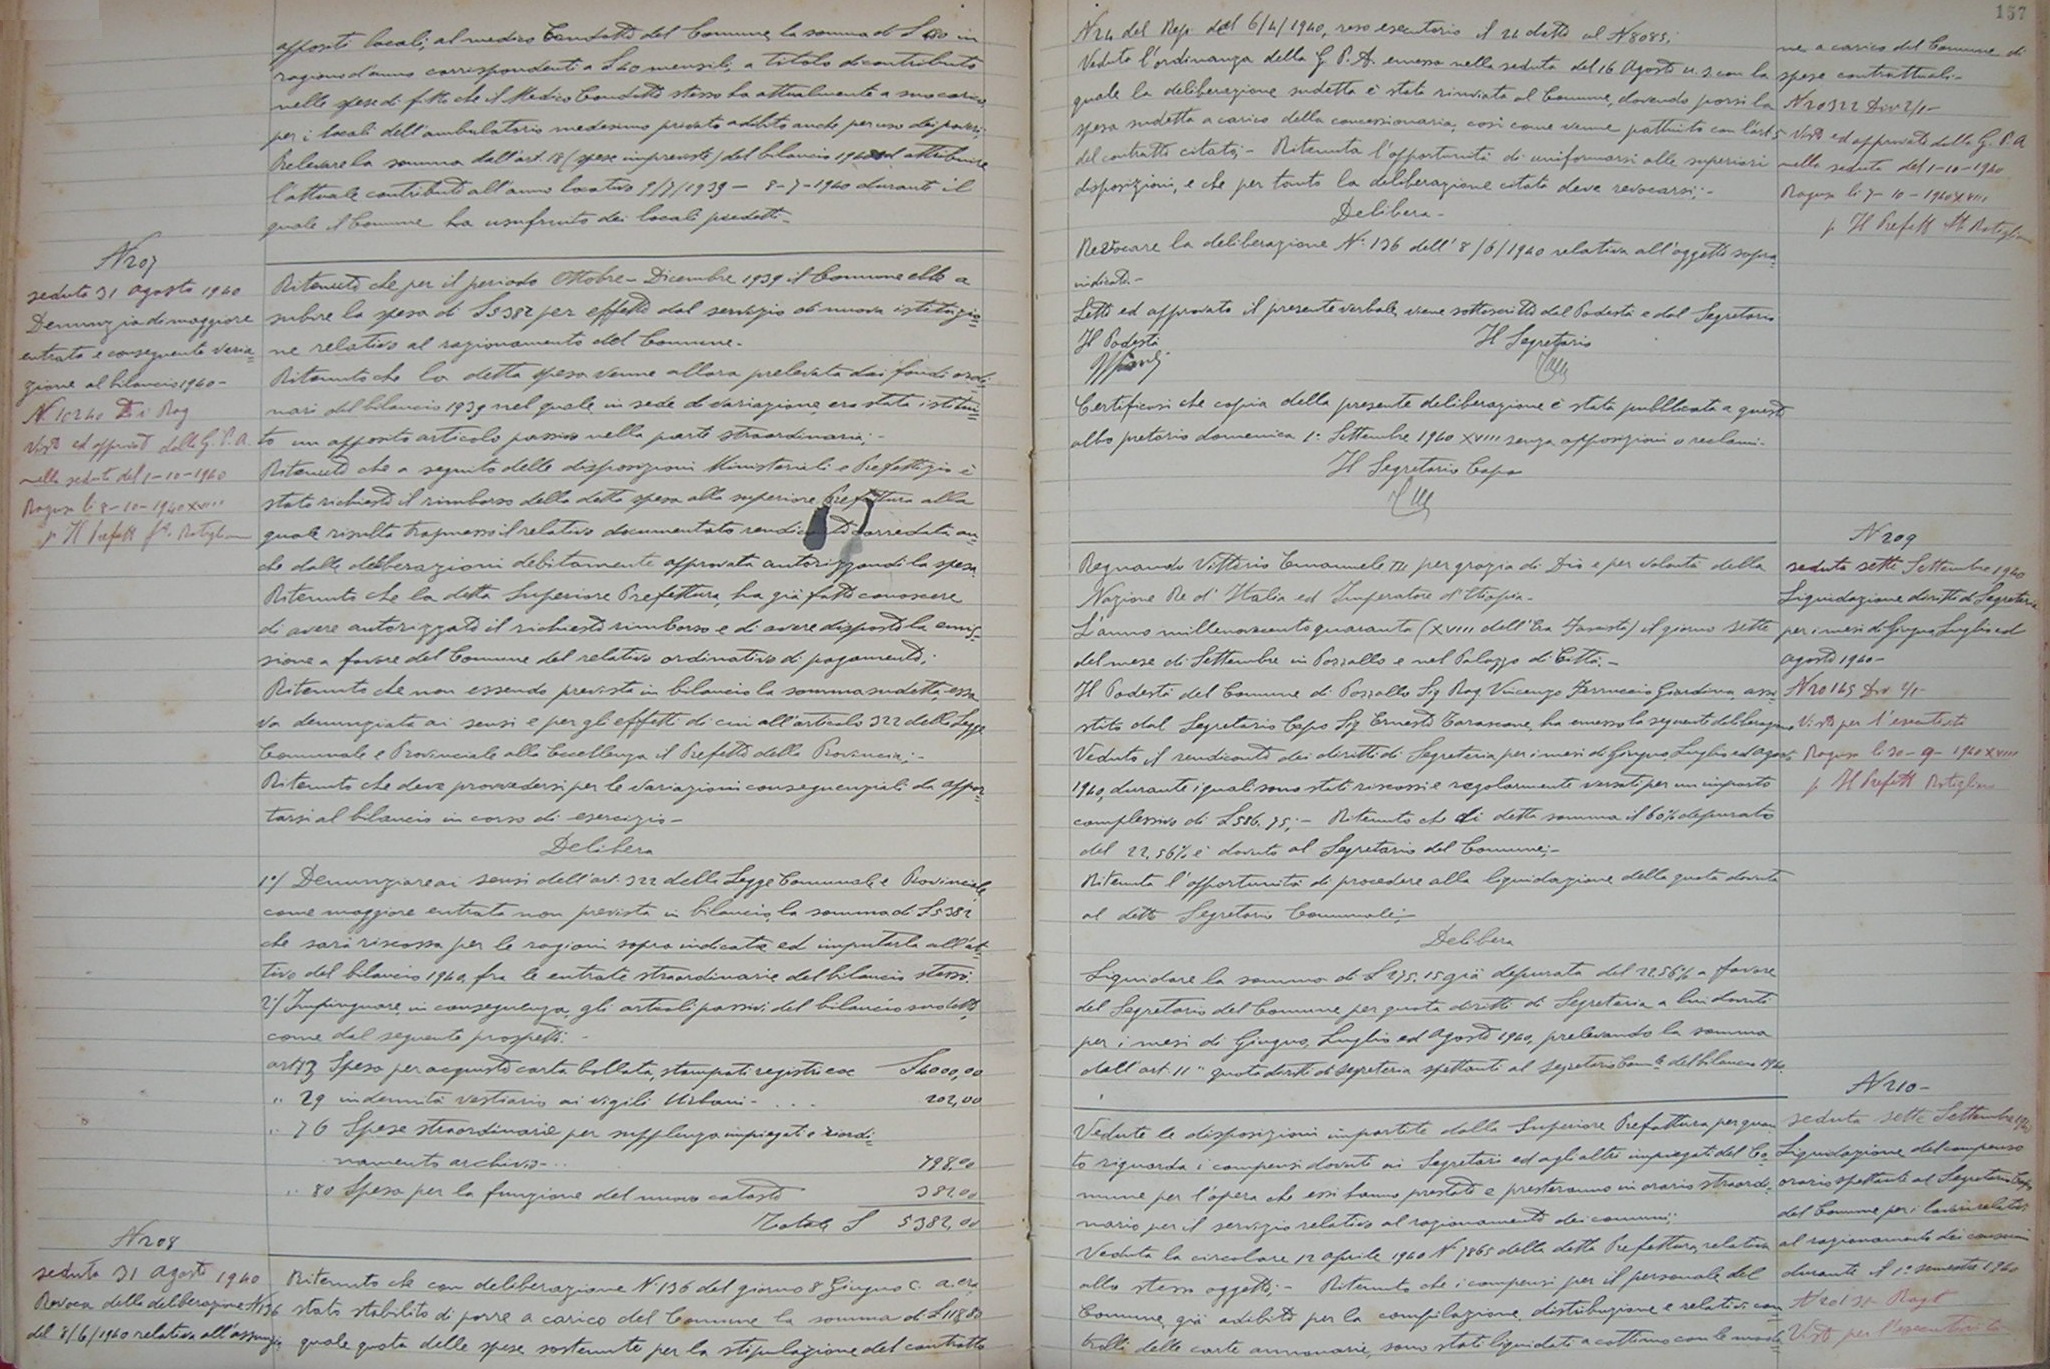 appositi locali, al medico Condotto del Comune, la somma di L 480 in
ragione d'anno corrispondenti a L 40 mensili, a titolo di contributo
nelle spese di fitto che il Medico Condotto stesso ha attualmente a suo carico,
per i locali dell'ambulatorio medesimo privato adibito anche per uso dei poveri.
Prelevare la somma dall'art. 18 (spese impreviste) del bilancio 1940 ed attribuire
l'attuale contributo all'anno locativo 9/7/1939 - 8-7-1940 durante il
quale il Comune ha usufruito dei locali predetti.-
N 207
seduta 31 agosto 1940
Denunzia di maggiore
entrata e conseguente varia=
zione al bilancio 1940-
N. 10240 Div Rag
Visto ed approvato dalla G.P.A.
nella seduta del 1-10-1940
Ragusa li 8-10-1940 XVIII
p. Il Prefetto
Ritenuto che per il periodo Ottobre - Dicembre 1939 il Comune ebbe a
subire la spesa di L 5382 per effetto del servizio di nuova istituzio=
ne relativo al razionamento del Comune.-
Ritenuto che la detta spesa venne allora prelevata dai fondi ordi=
nari del bilancio 1939 nel quale in sede di variazione, era stato istitui=
to un apposito articolo passivo nella parte straordinaria;-
Ritenuto che a seguito delle disposizioni Ministeriali e Prefettizie è
stato richiesto il rimborso della detta spesa alla superiore Prefettura alla
quale risulta trasmesso il relativo documentato rendiconto corredato an=
che dalle deliberazioni debitamente approvate autorizzandi la spesa.
Ritenuto che la detta Superiore Prefettura, ha già fatto conoscere
di avere autorizzato il richiesto rimborso e di avere disposto la emis=
sione a favore del Comune del relativo ordinativo di pagamento;
Ritenuto che non essendo prevista in bilancio la somma sudetta, essa
va denunziata ai sensi e per gli effetti di cui all'articolo 322 della Legge
Comunale e Provinciale alla Eccellenza il Prefetto della Provincia;-
Ritenuto che deve provvedersi per le variazioni consequenziali da appor=
tarsi al bilancio in corso di esercizio-
Delibera
1°/ Denunziare ai sensi dell'art. 322 della Legge Comunale e Provinciale,
come maggiore entrata non prevista in bilancio, la somma di L 5382
che sarà riscossa per le ragioni sopra indicate ed imputarla all'at=
tivo del bilancio 1940, fra le entrate straordinarie del bilancio stesso.
2°/ Impinguare, in conseguenza, gli articoli passivi del bilancio suddetto,
come dal seguente prospetto.-
art 13 Spesa per acquisto carta bollata, stampati registri ecc L 4000,00
" 29 indennità vestiario ai vigili Urbani- . . . 202,00
" 76 Spese straordinarie per supplenza impiegati e riordi=
namento archivio- . . 798,00
" 80 Spesa per la funzione del nuovo catasto 382,00
Totale L 5382,00
N 208
seduta 31 agosto 1940
Revoca della deliberazione N 136
del 8/6/1940 relativa all'assunzio
Ritenuto che con deliberazione N 136 del giorno 8 Giugno c. a. era
stato stabilito di porre a carico del Comune la somma di L 118,80
quale quota delle spese sostenute per la stipulazione del contratto
157
N 24 del Rep. del 6/4/1940, reso esecutorio il 24 detto al N 8085;
Veduta l'ordinanza della G.P.A. emessa nella seduta del 16 Agosto u. s con la
quale la deliberazione sudetta è stata rinviata al Comune, dovendo porsi la
spesa sudetta a carico della concessionaria, così come venne pattuito con l'art 5
del contratto citato;- Ritenuta l'opportunità di uniformarsi alle superiori
disposizioni, e che per tanto la deliberazione citata deve revocarsi;-
Delibera-
Revocare la deliberazione N. 136 dell'8/6/1940 relativa all'oggetto sopra=
indicato.-
Letto ed approvato il presente verbale, viene sottoscritto dal Podestà e dal Segretario
Il Podestà Il Segretario
Certificasi che copia della presente deliberazione è stata pubblicata a questo
albo pretorio domenica 1° Settembre 1940 XVIII senza opposizioni o reclami-
Il Segretario Capo
ne a carico del Comune di
spese contrattuali-
N 20322 Div 2/1-
Visto ed approvato dalla G.P.A
nella seduta del 1-10-1940
Ragusa li 7-10-1940 XVIII
p. Il Prefetto
N 209
seduta sette Settembre 1940
Liquidazione diritti di Segreteria
per i mesi di Giugno, Luglio ed
agosto 1940-
N 20165 Div 2/1-
Visto per l'esecutività
Ragusa li 30-9-1940 XVIII
p. Il Prefetto
Regnando Vittorio Emanuele III per grazia di Dio e per volontà della
Nazione Re d'Italia ed Imperatore d'Etiopia-
L'anno millenovecentoquaranta (XVIII dell'Era Fascista) il giorno sette
del mese di Settembre in Pozzallo e nel Palazzo di Città.-
Il Podestà del Comune di Pozzallo Sig Rag. Vincenzo Ferruccio Giardina, assi
stito dal Segretario Capo Sig Ernesto Tarascone, ha emesso la seguente deliberazione
Veduto il rendiconto dei diritti di Segreteria per i mesi di Giugno, Luglio ed agosto
1940, durante i quali sono stati riscossi e regolarmente versati per un importo
complessivo di L 586.75;- Ritenuto che di detta somma il 60% depurato
del 22,56% è dovuto al Segretario del Comune;-
Ritenuta l'opportunità di procedere alla liquidazione della quota dovuta
al detto Segretario Comunale;-
Delibera
Liquidare la somma di L 275.15 già depurata del 22.56% a favore
del Segretario del Comune per quota diritti di Segreteria a lui dovuti
per i mesi di Giugno, Luglio ed Agosto 1940, prelevando la somma
dall'art. 11 " quota diritti di segreteria spettanti al segretario Com.le del bilancio 1940.
N 210-
seduta sette Settembre 1940
Liquidazione del compenso
orario spettante al Segretario Capo
del Comune per i lavori relativi
al razionamento dei consumi
durante il 1° semestre 1940
N 20131 Rag.
Visto per l'esecutività
Vedute le disposizioni impartite dalla Superiore Prefettura per quan
to riguarda i compensi dovuti ai Segretari ed agli altri impiegati del Co=
mune per l'opera che essi hanno prestato e presteranno in orario straordi=
nario per il servizio relativo al razionamento dei consumi;
Veduta la circolare 12 aprile 1940 N 7865 della detta Prefettura, relativa
allo stesso oggetto;- Ritenuto che i compensi per il personale del
Comune, già adibito per la compilazione, distribuzione e relativi con
trolli delle carte annonarie, sono stati liquidati a cottimo con le